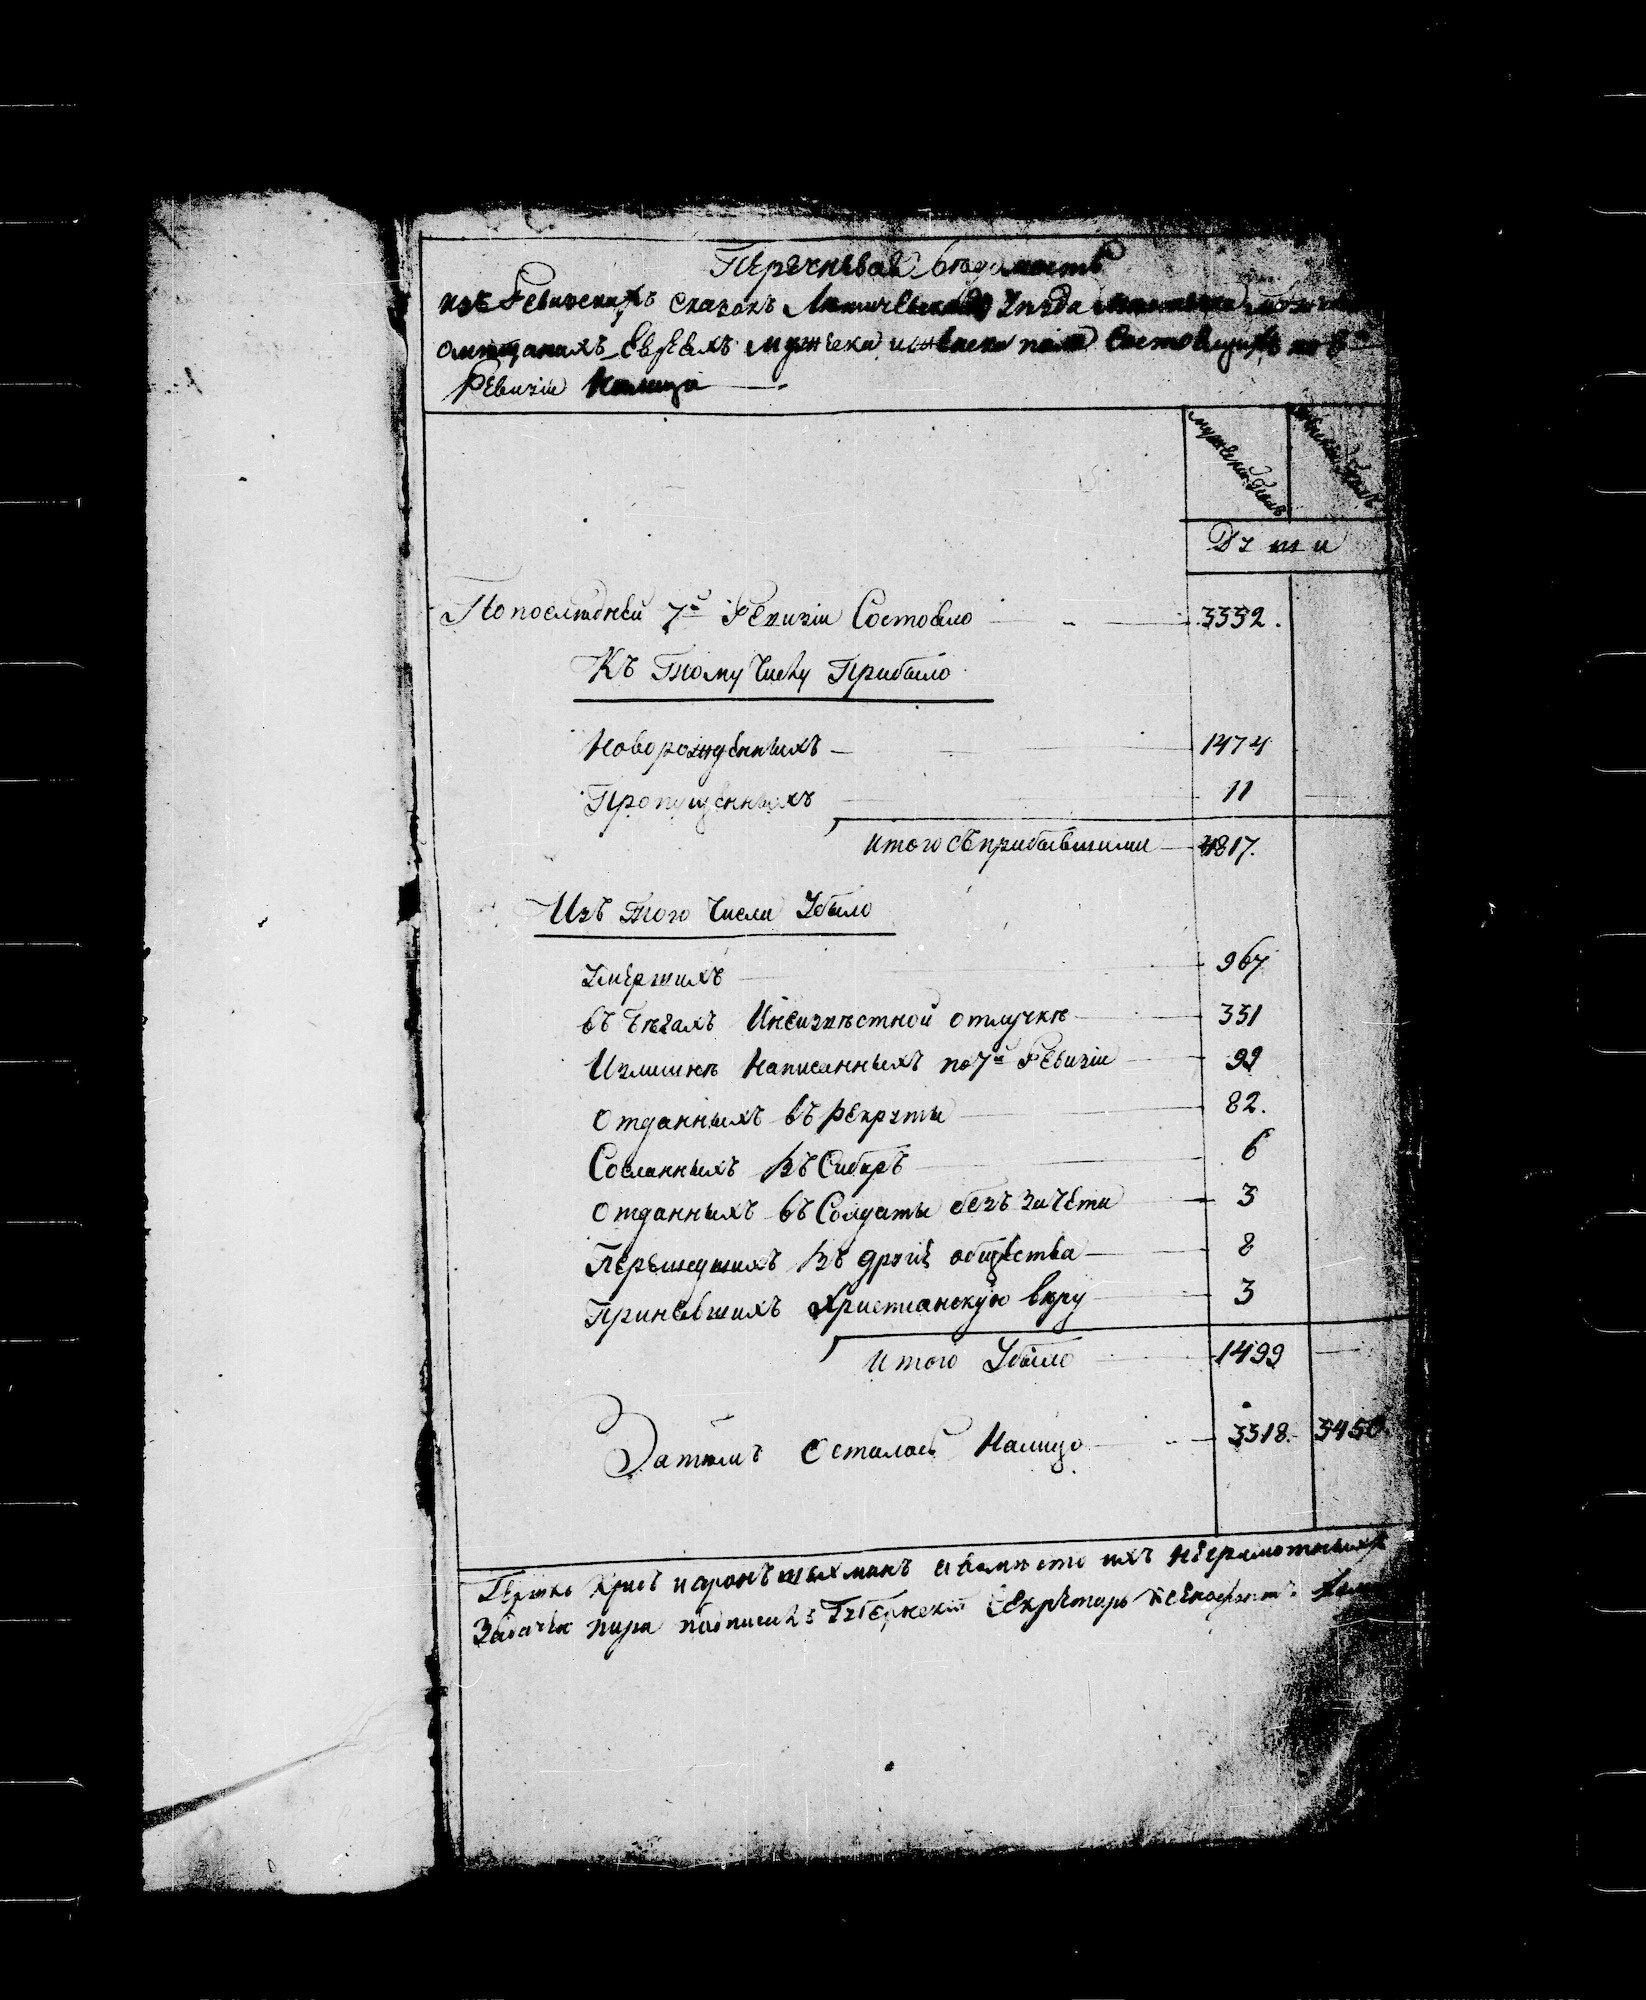 Перечневая ведомость
изъ Ревизскихъ сказокъ Летичевскаго Уезда
о мещанахъ Евреяхъ мужеска и женска пола Состоящихъ по 8й
Ревизіи Налицо
мужескій Полъ
женскій Полъ
Души
По последней 7й Ревизіи Состояло 3332.
Къ Тому Числу Прибыло
Новорожденныхъ 1474
Пропущенныхъ 11
Итого съ прибывшими 4817.
Изъ Того Числа Убыло
Умершихъ 967
въ бегахъ И неизвестной отлучкѣ 331
Излишне Написанныхъ по 7й Ревизіи 99
Отданныхъ въ рекруты 82.
Сосланныхъ въ Сибирь 6
Отданныхъ въ Солдаты безъ зачета 3
Перешедшихъ въ другіе общества 8
Принявшихъ Христіанскую веру 3
Итого Убыло 1499
Затемъ Осталось Налицо 3318. 3450.
и вместо ихъ неграмотныхъ
подписалъ Губернскій Секретарь